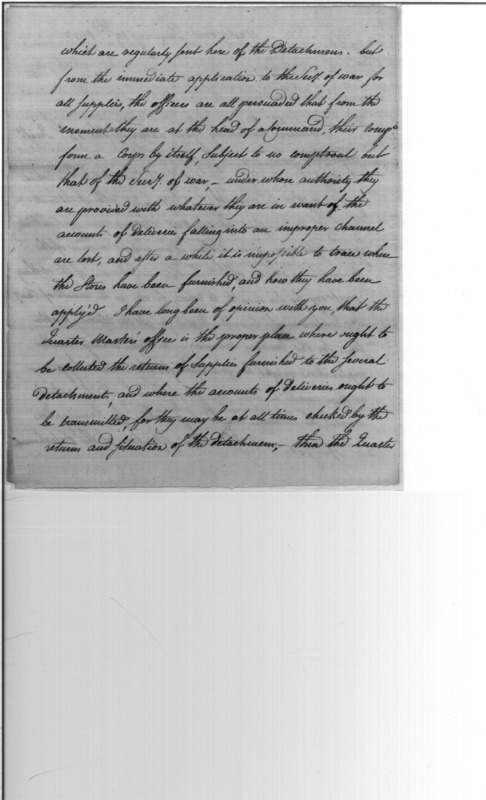 which are regularly sent here of the Detachmens. but
from the immediate application to the Secy. of war for
all supplies, the officers are all persuaded that from the
moment they are at the head of a Command, their Compie
form a Corps by itself, Subject to no comptroul but
that of the Secy. of war, – under whose authority they
are provided with whatever they are in want of the
accounts of deliverie falling into an improper channel
are lost, and after a while it is impossible to trace where
the Stores have been furnished, and how they have been
apply'd. I have long been of opinion with you, that the
Quarter Master's office is the proper place where ought to
be collected the returns of Supplies furnished to the several
detachments, and where the accounts of deliveries ought to
be transmitted, for they may be at all times checked by the
returns and Situation of the detachmens; – then the Quarter